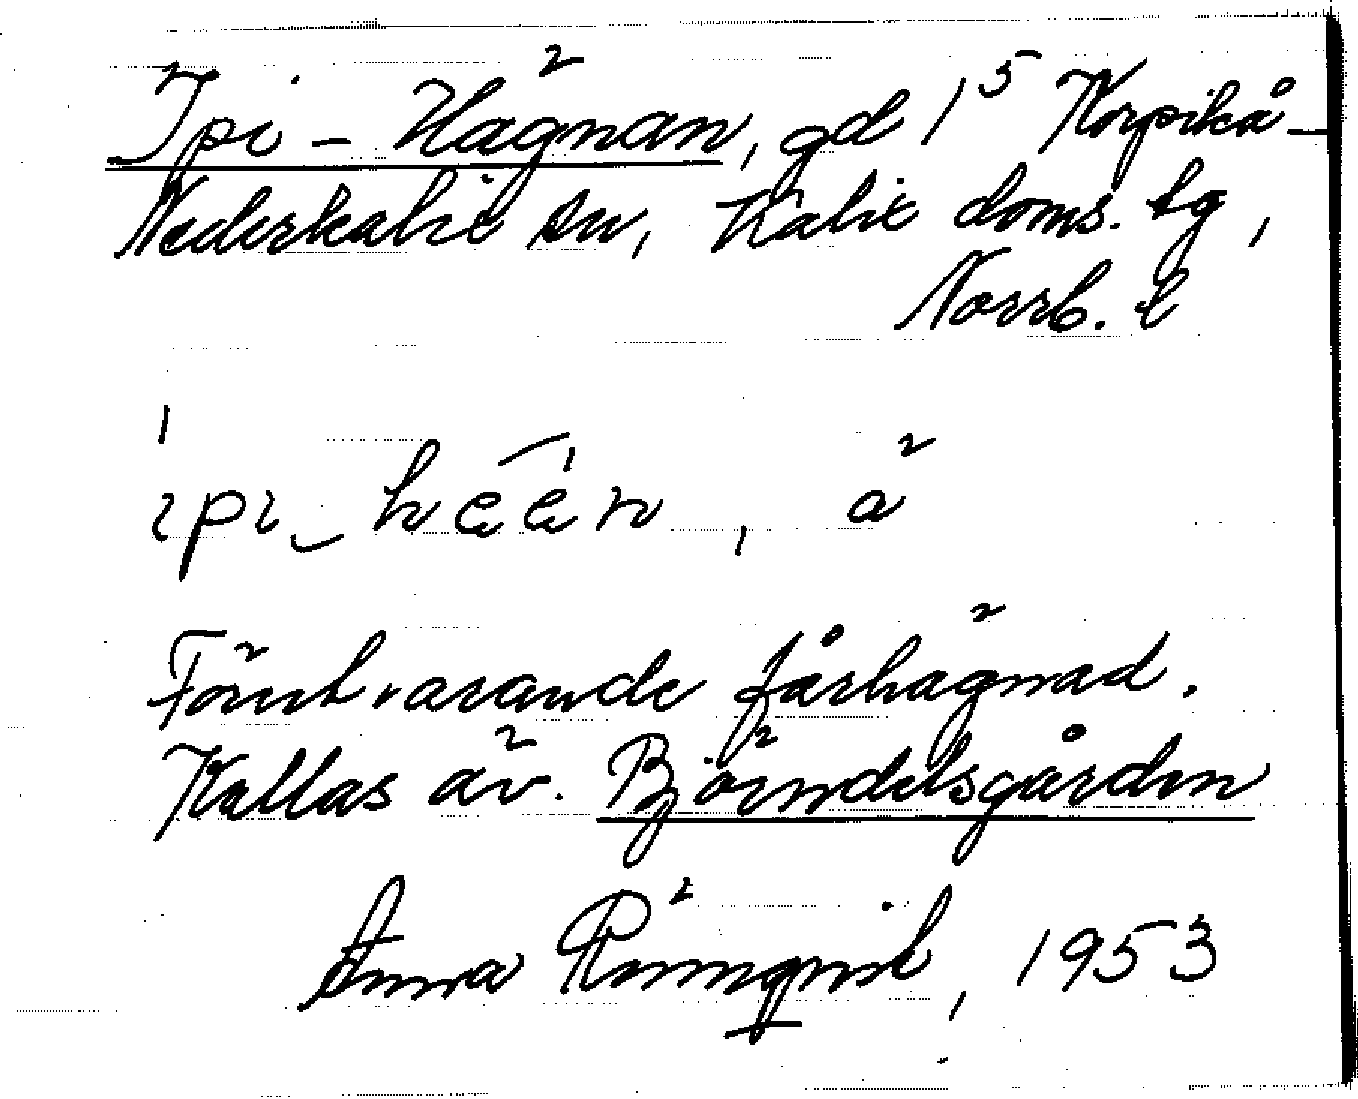 Ipi-Hägnan, gd 1⁵ Korpikå-
Nederkalix sn, Kalix doms. lg,
Norrb. l
ipi-hēēn, ä
Förutvarande fårhägnad.
Kallas äv. Björndelsgården
Anna Rönnqvist, 1953